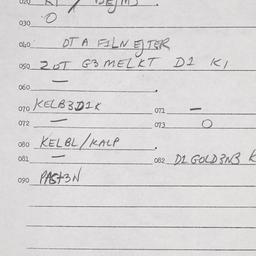 030 O
040 DT A FILN EJTER
050 2 OT G3 MELKT D1 KI
060
070 KELB3D1K 071 —
072 — 073 O
080 KELBL/KALP
081 — 082 D1 GOLD3N3 K
090 PAST3N